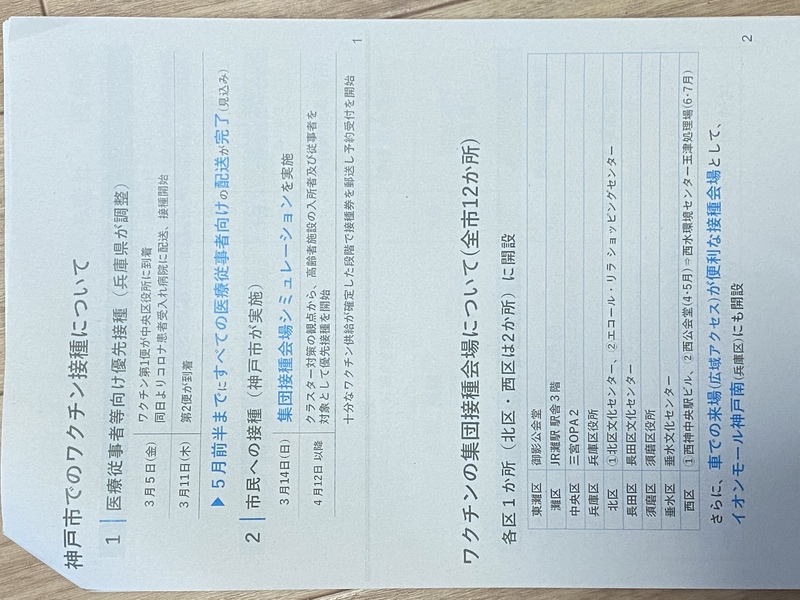 神戸市でのワクチン接種について
1 医療従事者等向け優先接種（兵庫県が調整）
3月5日(金) ワクチン第1便が中央区役所に到着
同日よりコロナ患者受入れ病院に配送、接種開始
3月11日(木) 第2便が到着
▶5月前半までにすべての医療従事者向けの配送が完了(見込み)
2 市民への接種（神戸市が実施）
3月14日(日) 集団接種会場シミュレーションを実施
4月12日 以降 クラスター対策の観点から、高齢者施設の入所者及び従事者を
対象として優先接種を開始
十分なワクチン供給が確定した段階で接種券を郵送し予約受付を開始
1
ワクチンの集団接種会場について(全市12か所)
各区1か所（北区・西区は2か所）に開設
東灘区 御影公会堂
灘区 JR灘駅 駅舎3階
中央区 三宮OPA2
兵庫区 兵庫区役所
北区 ①北区文化センター、②エコール・リラ ショッピングセンター
長田区 長田区文化センター
須磨区 須磨区役所
垂水区 垂水文化センター
西区 ①西神中央駅ビル、②西公会堂(4・5月)⇒西水環境センター玉津処理場(6・7月)
さらに、車での来場(広域アクセス)が便利な接種会場として、
イオンモール神戸南(兵庫区)にも開設
2